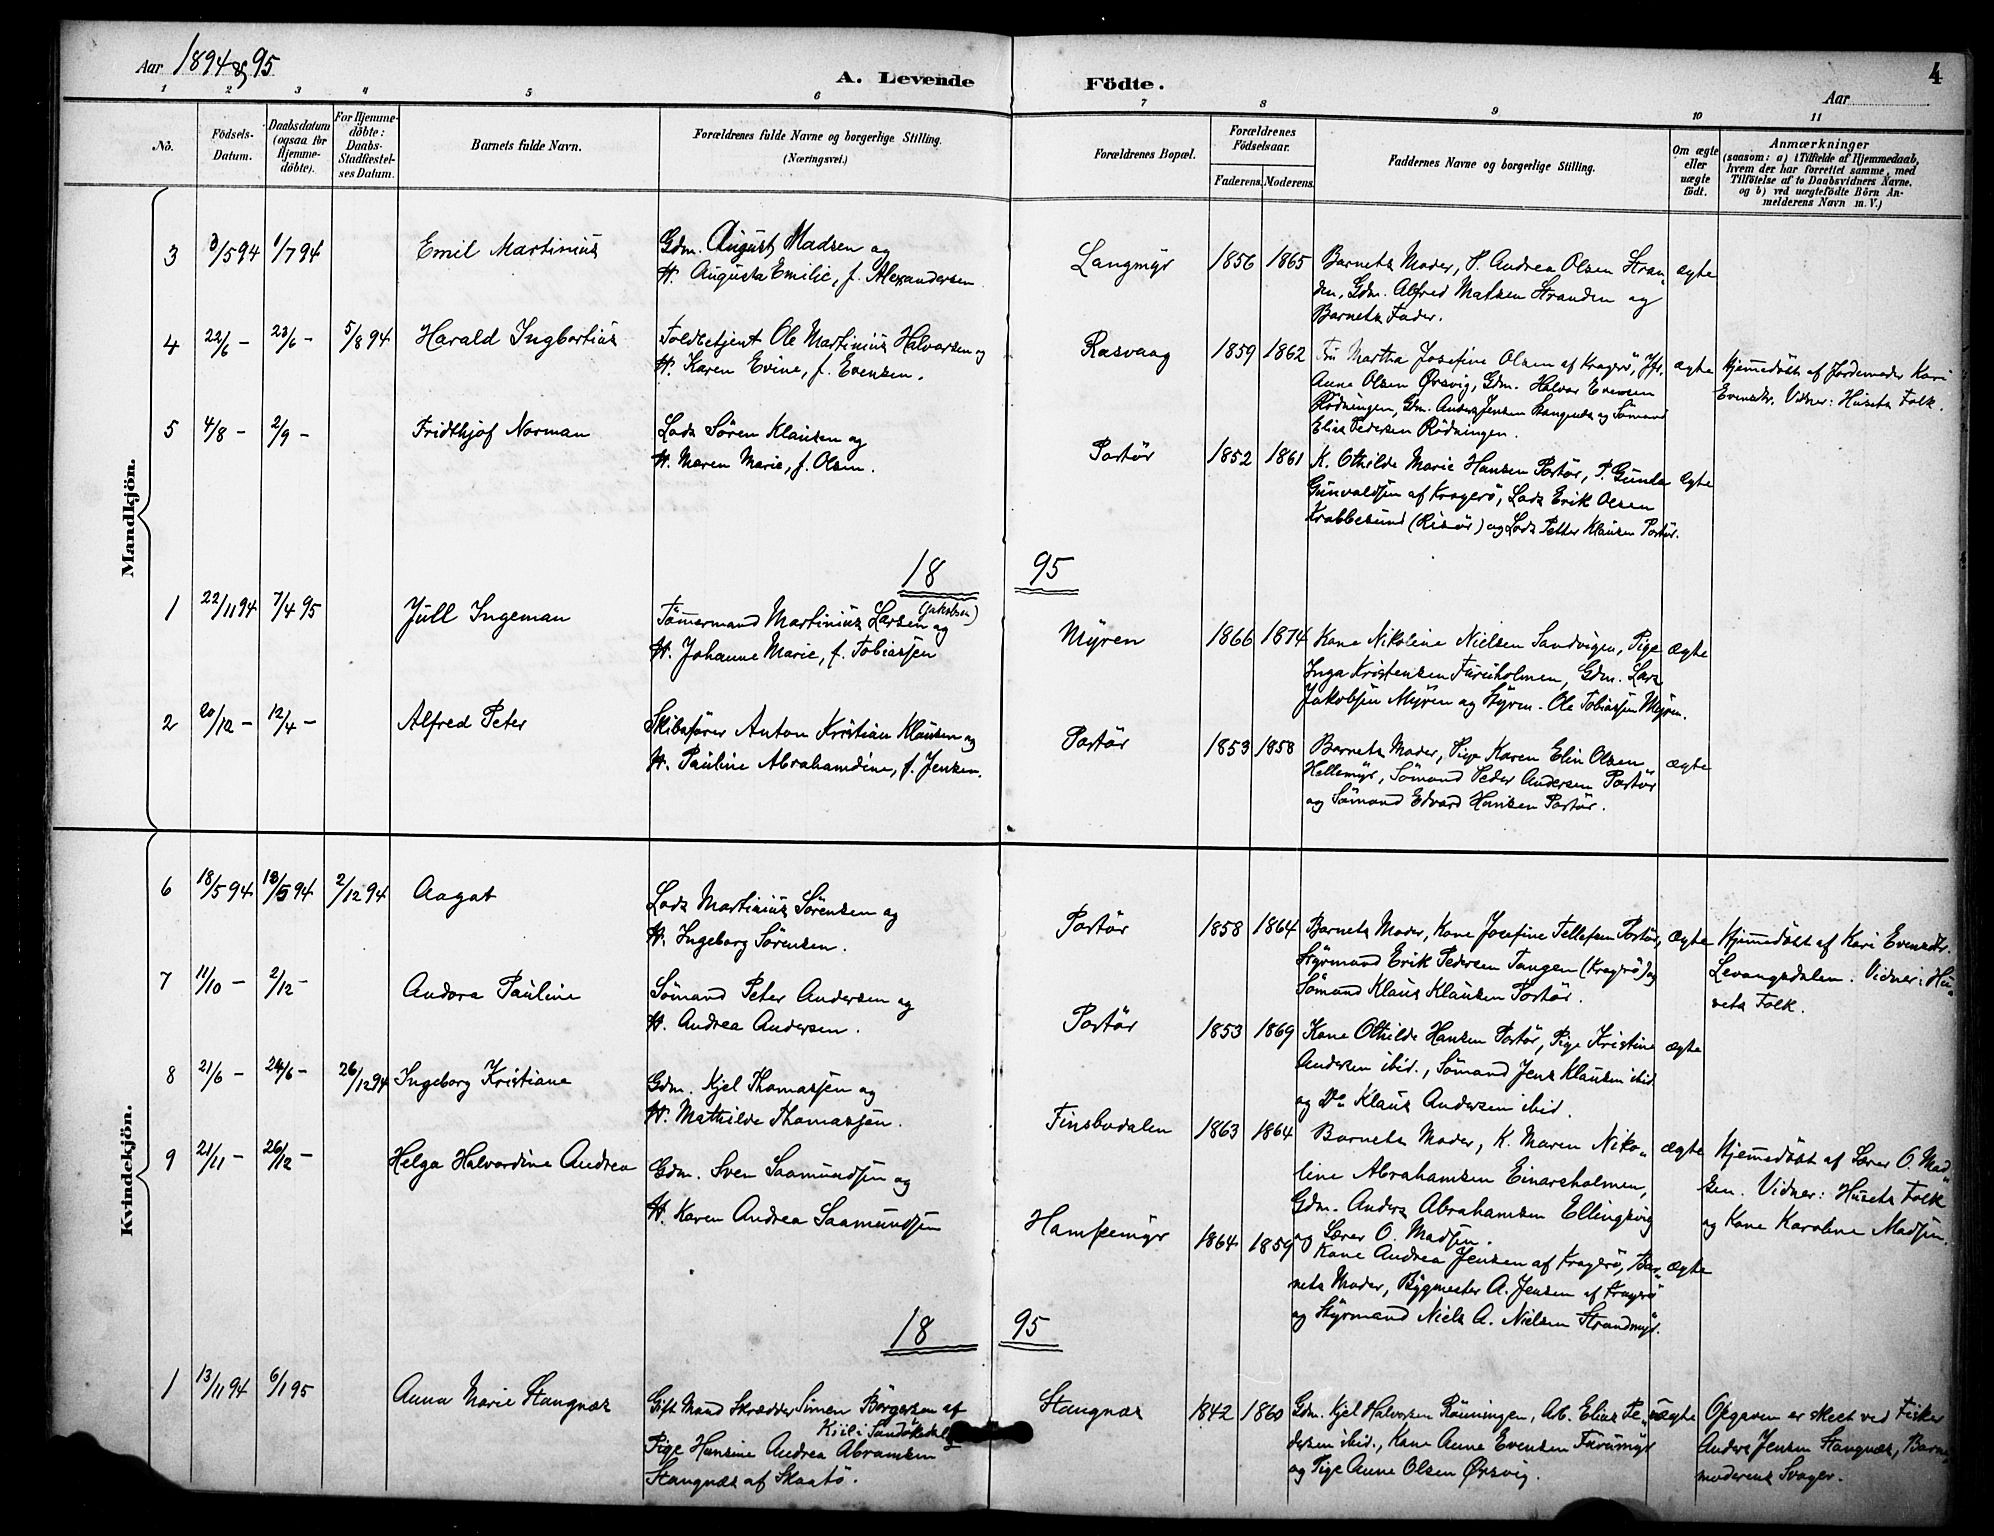 Aar 1894 & 95
A. Levende Födte.
4
Aar
1 2 3 4 5 6 7 8 9 10 11
No.
Födsels-Datum.
Daabsdatum (ogsaa for Hjemme-döbte).
For Hjemme-döbte: Daabs-Stadfæstel-ses Datum.
Barnets fulde Navn.
Forældrenes fulde Navne og borgerlige Stilling.
(Næringsvei.)
Forældrenes Bopæl.
Forældrenes Födselsaar.
Faderens. Moderens.
Faddernes Navne og borgerlige Stilling.
Om ægte eller uægte födt.
Anmærkninger
(saasom: a) i Tilfælde af Hjemmedaab,
hvem der har forrettet samme, med
Tilföielse af to Daabsvidners Navne.
og b) ved uægtefödte Börn An-
melderens Navn m. V.)
Mandkjön.
3 3/5 94 1/7 94 Emil Martinius
Gdm. August Madsen og
H. Augusta Emilie, f. Alexandersen
Langmyr 1856 1865
Barnets Moder, P. Andrea Olsen Stran-
den, Gdm. Alfred Matsen Stranden og
Barnets Fader.
ægte
4 22/6 – 23/6 – 5/8 94 Harald Ingbortius
Toldbetjent Ole Martinius Halvorsen og
H. Karen Evine, f. Evensen.
Rasvaag 1859 1862
Fru Martha Josefine Olsen af Kragerö, Jfr.
Anne Olsen Ørsvig, Gdm. Halvor Evensen
Rödningen, Gdm. Anders Jensen Stangnes og Sömand
Elias Pedersen Rödningen.
ægte
Hjemmedöbt af Jordemoder Kari
Evensdtr. Vidner: Husets Folk.
5 4/8 – 2/9 – Fridthjof Norman
Lods Sören Klausen og
H. Maren Marie, f. Olsen.
Portör 1852 1861
K. Othilde Marie Hansen Portör, P. Gunda
Gunvaldsen af Kragerö, Lods Erik Olsen
Krabbesund (Risör) og Lods Petter Klausen Portör.
ægte
18 95
1 22/11 94 7/4 95 Jull Ingeman
(Jakobsen)
Tömmermand Martinius Larsen og
H. Johanne Marie, f. Tobiassen
Myren 1866 1874
Kone Nikoline Nielsen Sandvigen, Pige
Inga Kristensen Furuholmen, Gdm. Lars
Jakobsen Myren og Styrm. Ole Tobiassen Myren.
ægte
2 20/12 – 12/4 – Alfred Peter
Skibsförer Anton Kristian Klausen og
H. Pauline Abrahamdine, f. Jensen.
Portör 1853 1858
Barnets Moder, Pige Karen Elin Olsen
Hellemyr, Sömand Peder Andersen Portör
og Sömand Edvard Hansen Portör.
ægte
Kvindekjön.
6 18/5 94 18/5 94 2/12 94 Aagot
Lods Martinius Sörensen og
H. Ingeborg Sörensen.
Portör 1858 1864
Barnets Moder, Kone Josefine Tellefsen Portör,
Styrmand Erik Pedersen Tangen (Kragerö) og
Sömand Klaus Klausen Portör.
ægte
Hjemmedöbt af Kari Evensdtr.
Levangsdalen. Vidner: Hu-
sets Folk.
7 11/10 – 2/12 – Andora Pauline
Sömand Peter Andersen og
H. Andrea Andersen.
Portör 1853 1869
Kone Othilde Hansen Portör, Pige Kristine
Andersen ibid., Sömand Jens Klausen ibid.
og Do Klaus Andersen ibid.
ægte
8 21/6 – 24/6 – 26/12 94 Ingeborg Kristiane
Gdm. Kjel Thomassen og
H. Mathilde Thomassen.
Finsbodalen 1863 1864
Barnets Moder, K. Maren Niko-
line Abrahamsen Einarsholmen,
Gdm. Anders Abrahamsen Ellingsvig
og Lærer O. Madsen.
ægte
Hjemmedöbt af Lærer O. Mad-
sen. Vidner: Husets Folk
og Kone Karoline Madsen.
9 21/11 – 26/12 – Helga Halvordine Andrea
Gdm. Sven Saamundsen og
H. Karen Andrea Saamundsen
Hampemyr 1864 1859
Kone Andrea Jensen af Kragerö, Bar-
nets Moder, Bygmester A. Jensen af Kragerö
og Styrmand Niels A. Nielsen Strandmyr.
ægte
18 95
1 13/11 94 6/1 95 Anna Marie Stangnes
Gift Mand Skrædder Simen Börgersen af
Kiil i Sandökedal &
Pige Hansine Andrea Abramsen
Stangnes af Skaatö.
Stangnes 1842 1860
Gdm. Kjel Halvorsen Rönningen, Arb. Elias Pe-
dersen ibid., Kone Anne Evensen Furumyr
og Pige Anne Olsen Ørsvig.
uægte
Opgaven er skeet ved Fisker
Anders Jensen Stangnes, Barne-
moderens Svoger.